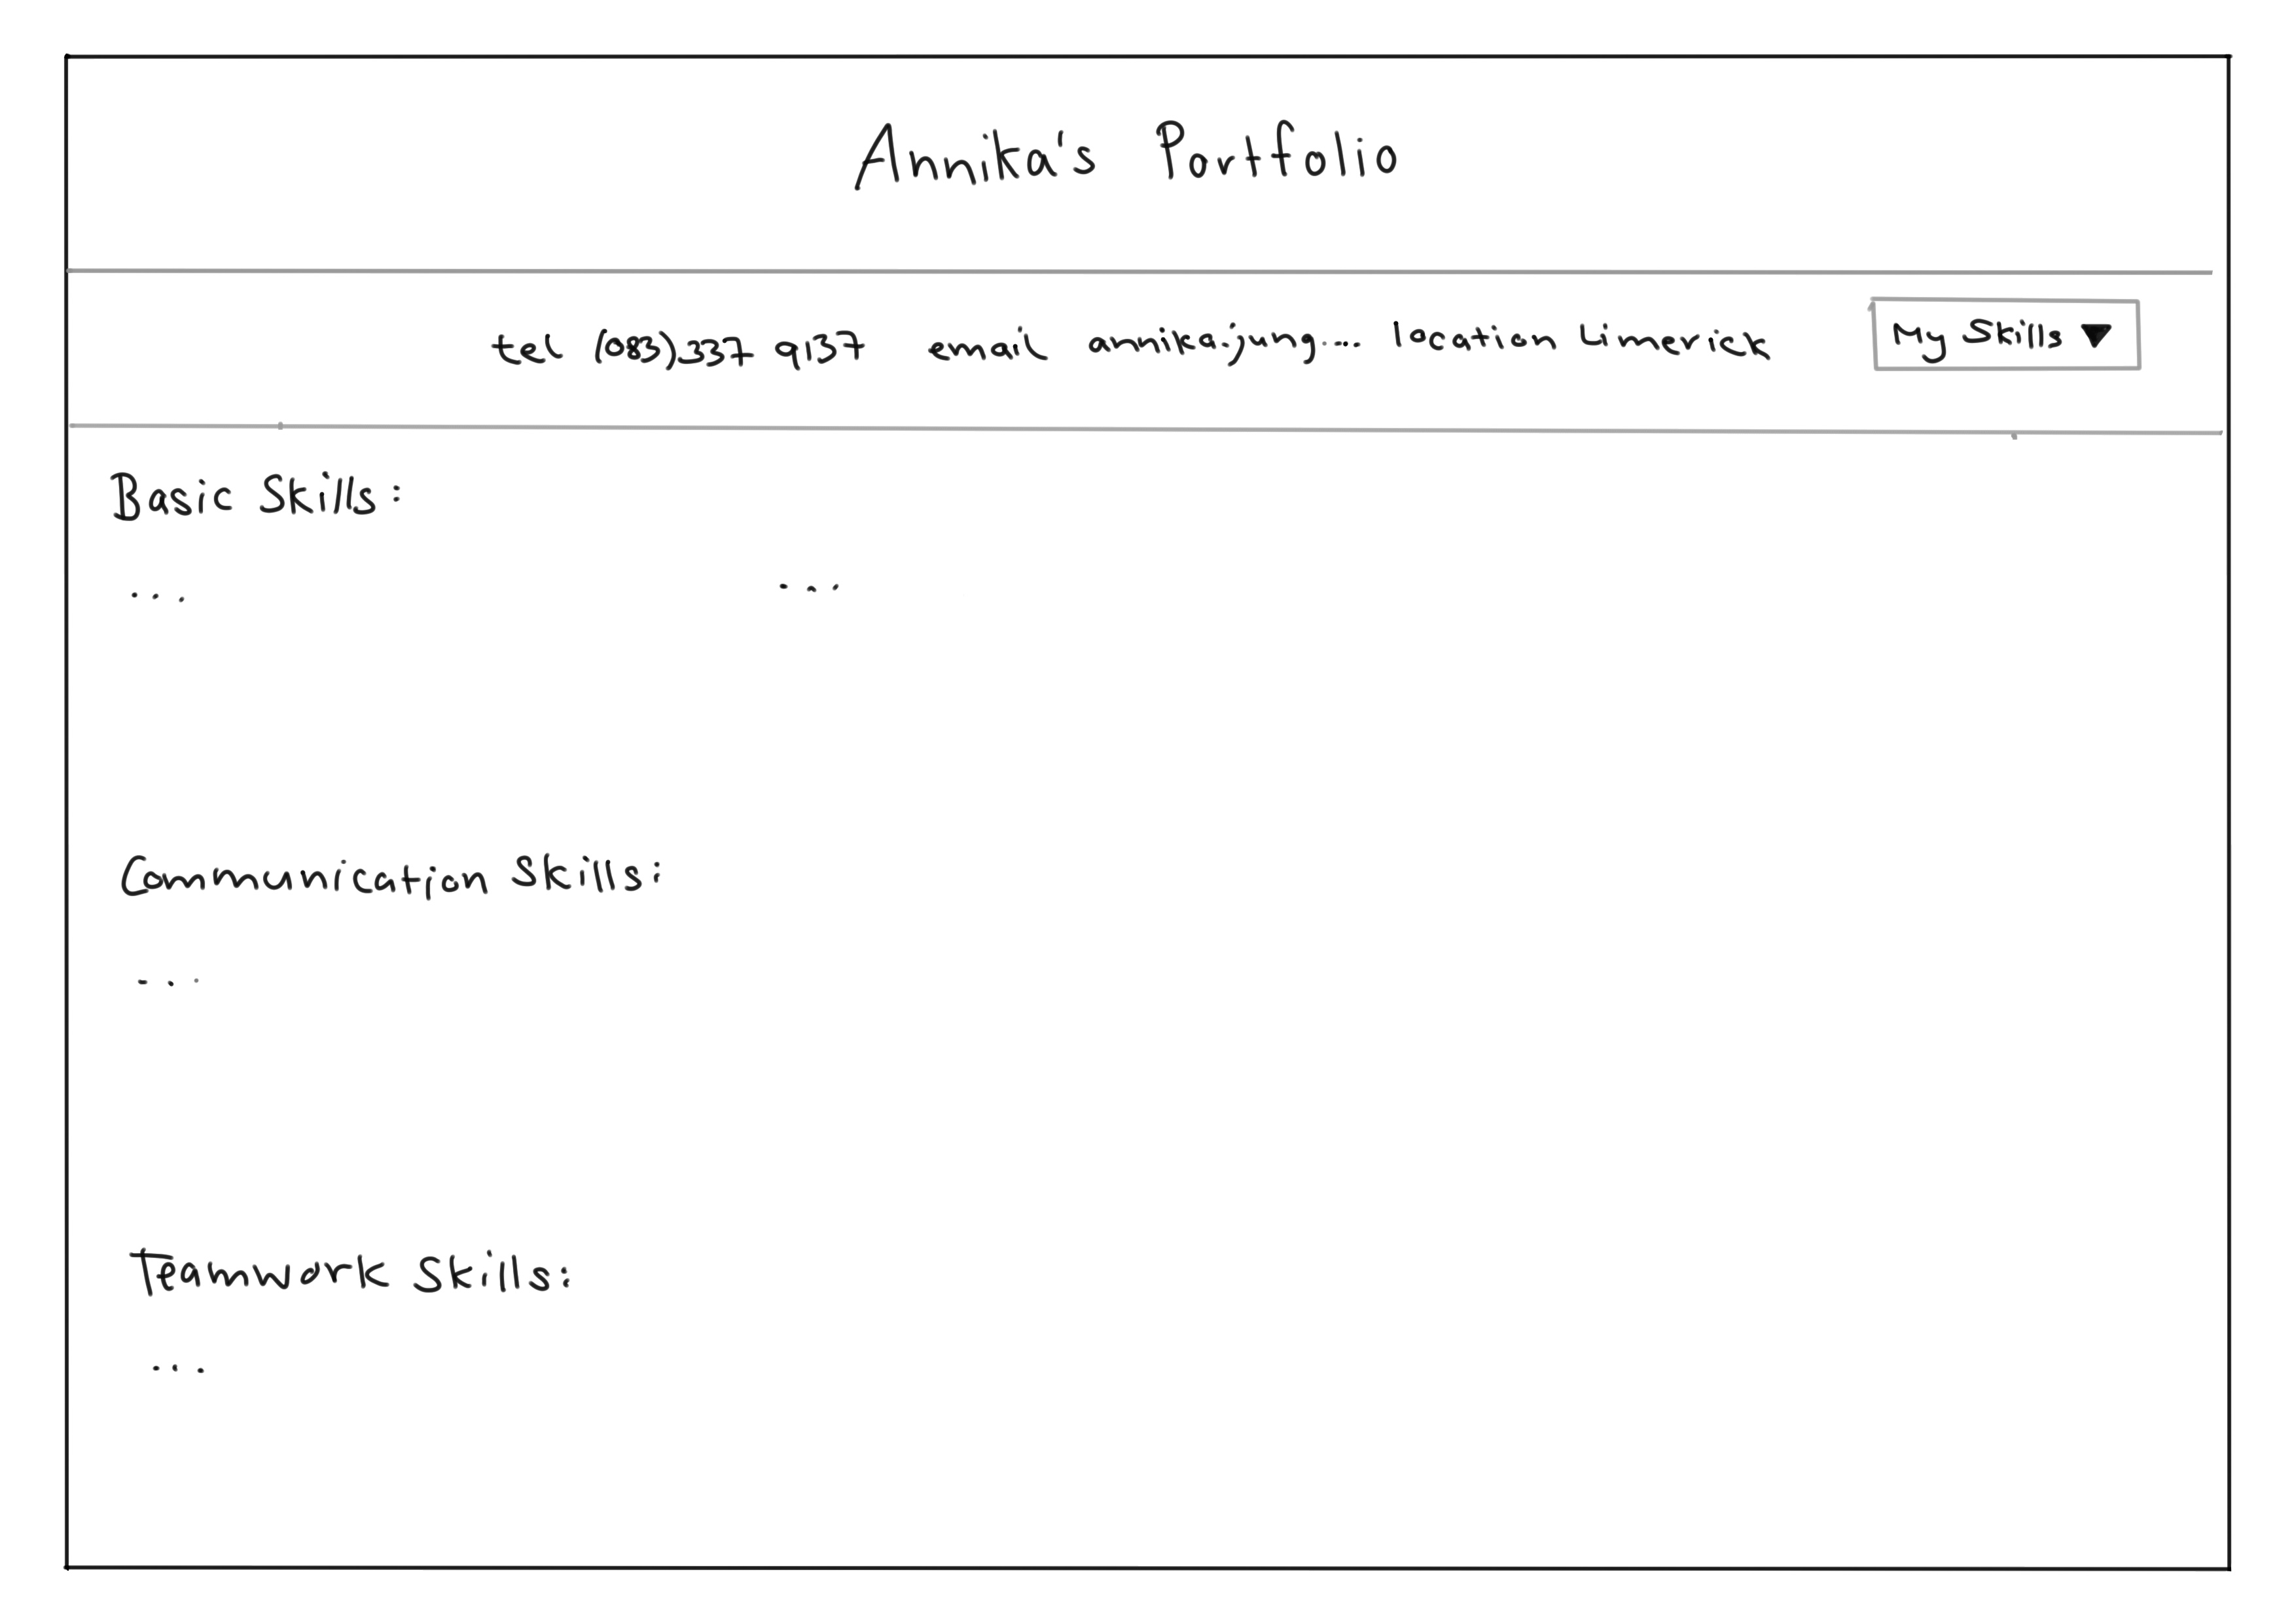 Annika's Portfolio
tel (083) 337 9137 email annika.jung... location Limerick My Skills ▼
Basic Skills:
... ...
Communication Skills:
...
Teamwork Skills:
...